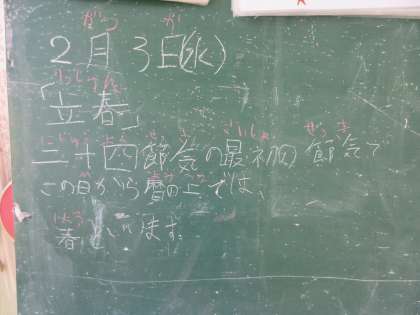 2月3日(水)
「立春」
二十四節気の最初の節気で
この日から暦の上では、
春といいます。